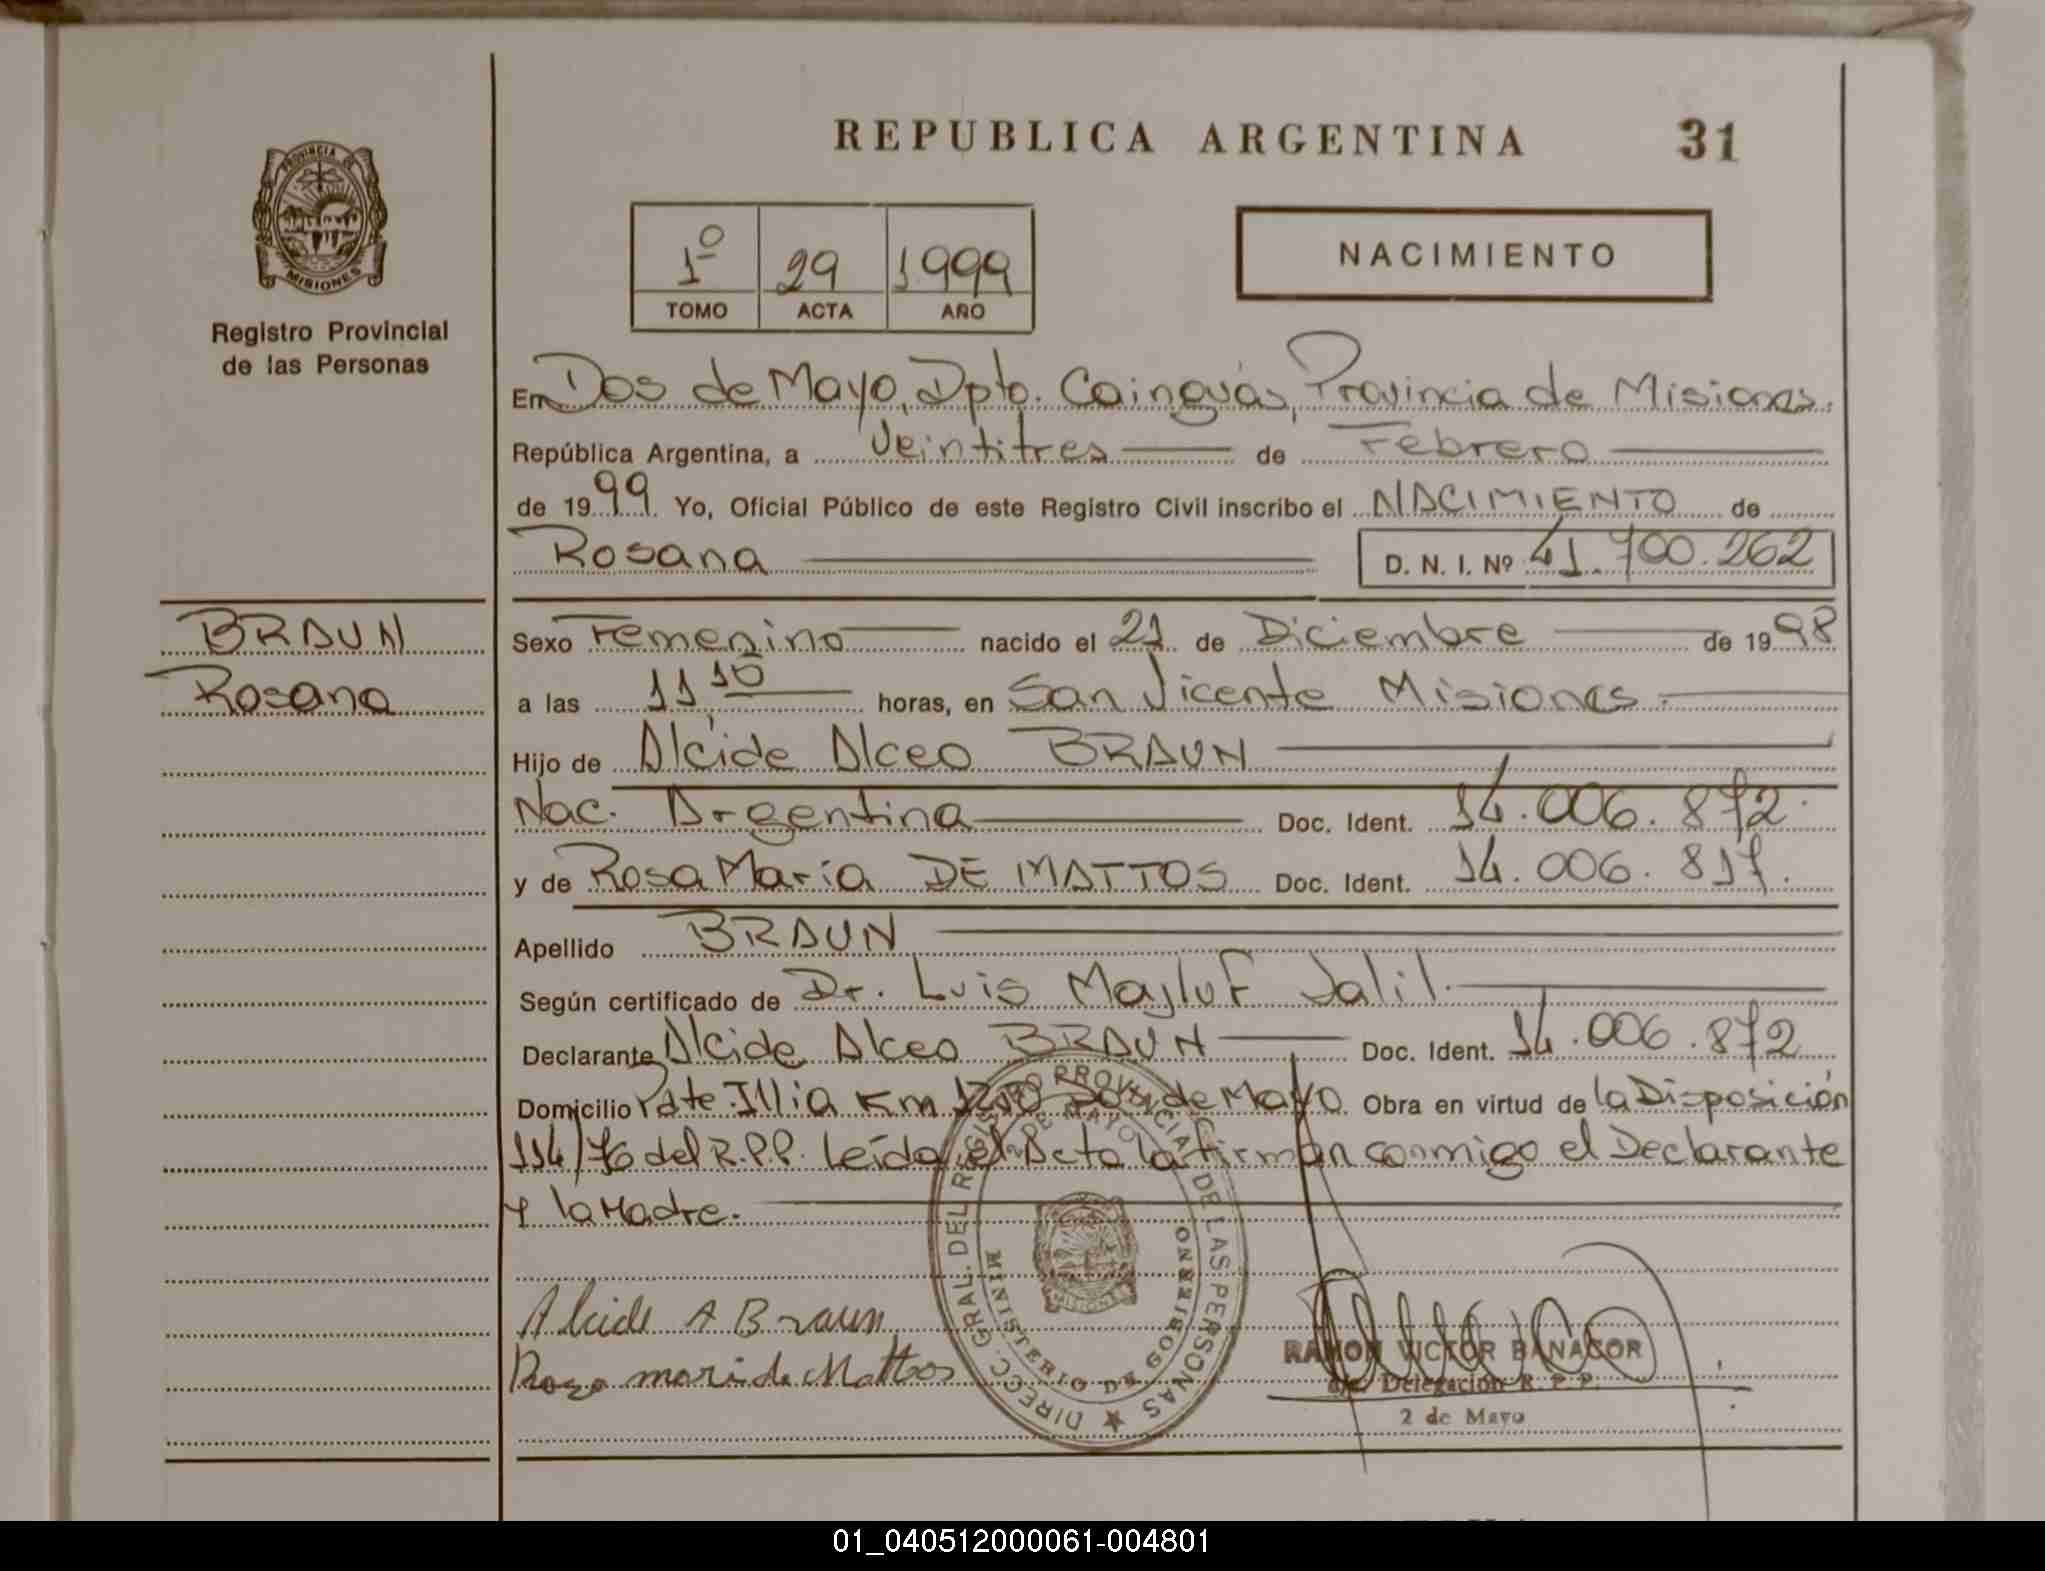 REPUBLICA ARGENTINA 31
PROVINCIA DE
MISIONES
Registro Provincial
de las Personas
1º 29 1.999
TOMO ACTA AÑO
NACIMIENTO
En Dos de Mayo, Dpto. Cainguás, Provincia de Misiones.
República Argentina, a Veintitres de Febrero
de 1999 Yo, Oficial Público de este Registro Civil inscribo el NACIMIENTO de
Rosana D. N. I. Nº 41.700.262
BRAUN
Rosana
Sexo Femenino nacido el 21 de Diciembre de 1998
a las 11,10 horas, en San Vicente Misiones.
Hijo de Alcide Alceo BRAUN
Nac. Argentina Doc. Ident. 14.006.872.
y de Rosa María DE MATTOS Doc. Ident. 14.006.817.
Apellido BRAUN
Según certificado de Dr. Luis Mayluf Jalil.
Declarante Alcide Alceo BRAUN Doc. Ident. 14.006.872
Domicilio Pdte. Illia Km Dos de Mayo Obra en virtud de la Disposición
114/76 del R.P.P. Leída el Acta la firman conmigo el Declarante
y la Madre.
DIRECC. GRAL. DEL REGISTRO PROVINCIAL DE LAS PERSONAS
2 DE MAYO
MINISTERIO DE GOBIERNO
MISIONES
Alcide A Braun
Rosa maria de Mattos
RAMON VICTOR BANACOR
Delegación R. P. P.
2 de Mayo
01_040512000061-004801